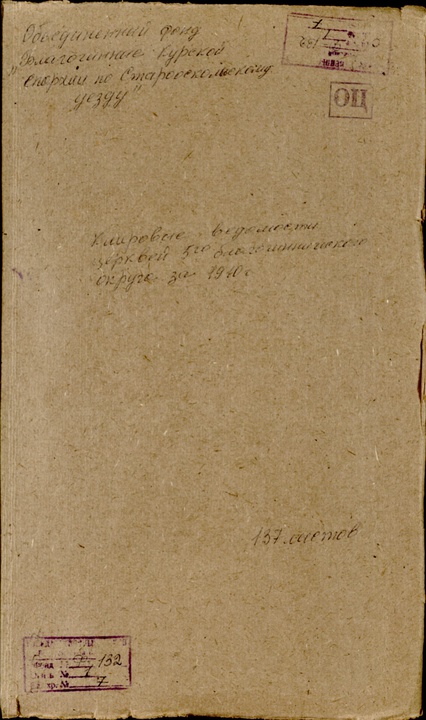 Объединенный фонд
"Благочинные Курской
епархии по Старооскольскому
уезду"
ОЦ
Клировые ведомости
церквей 5го благочиннического
округа за 1910 г
137 листов
132
7